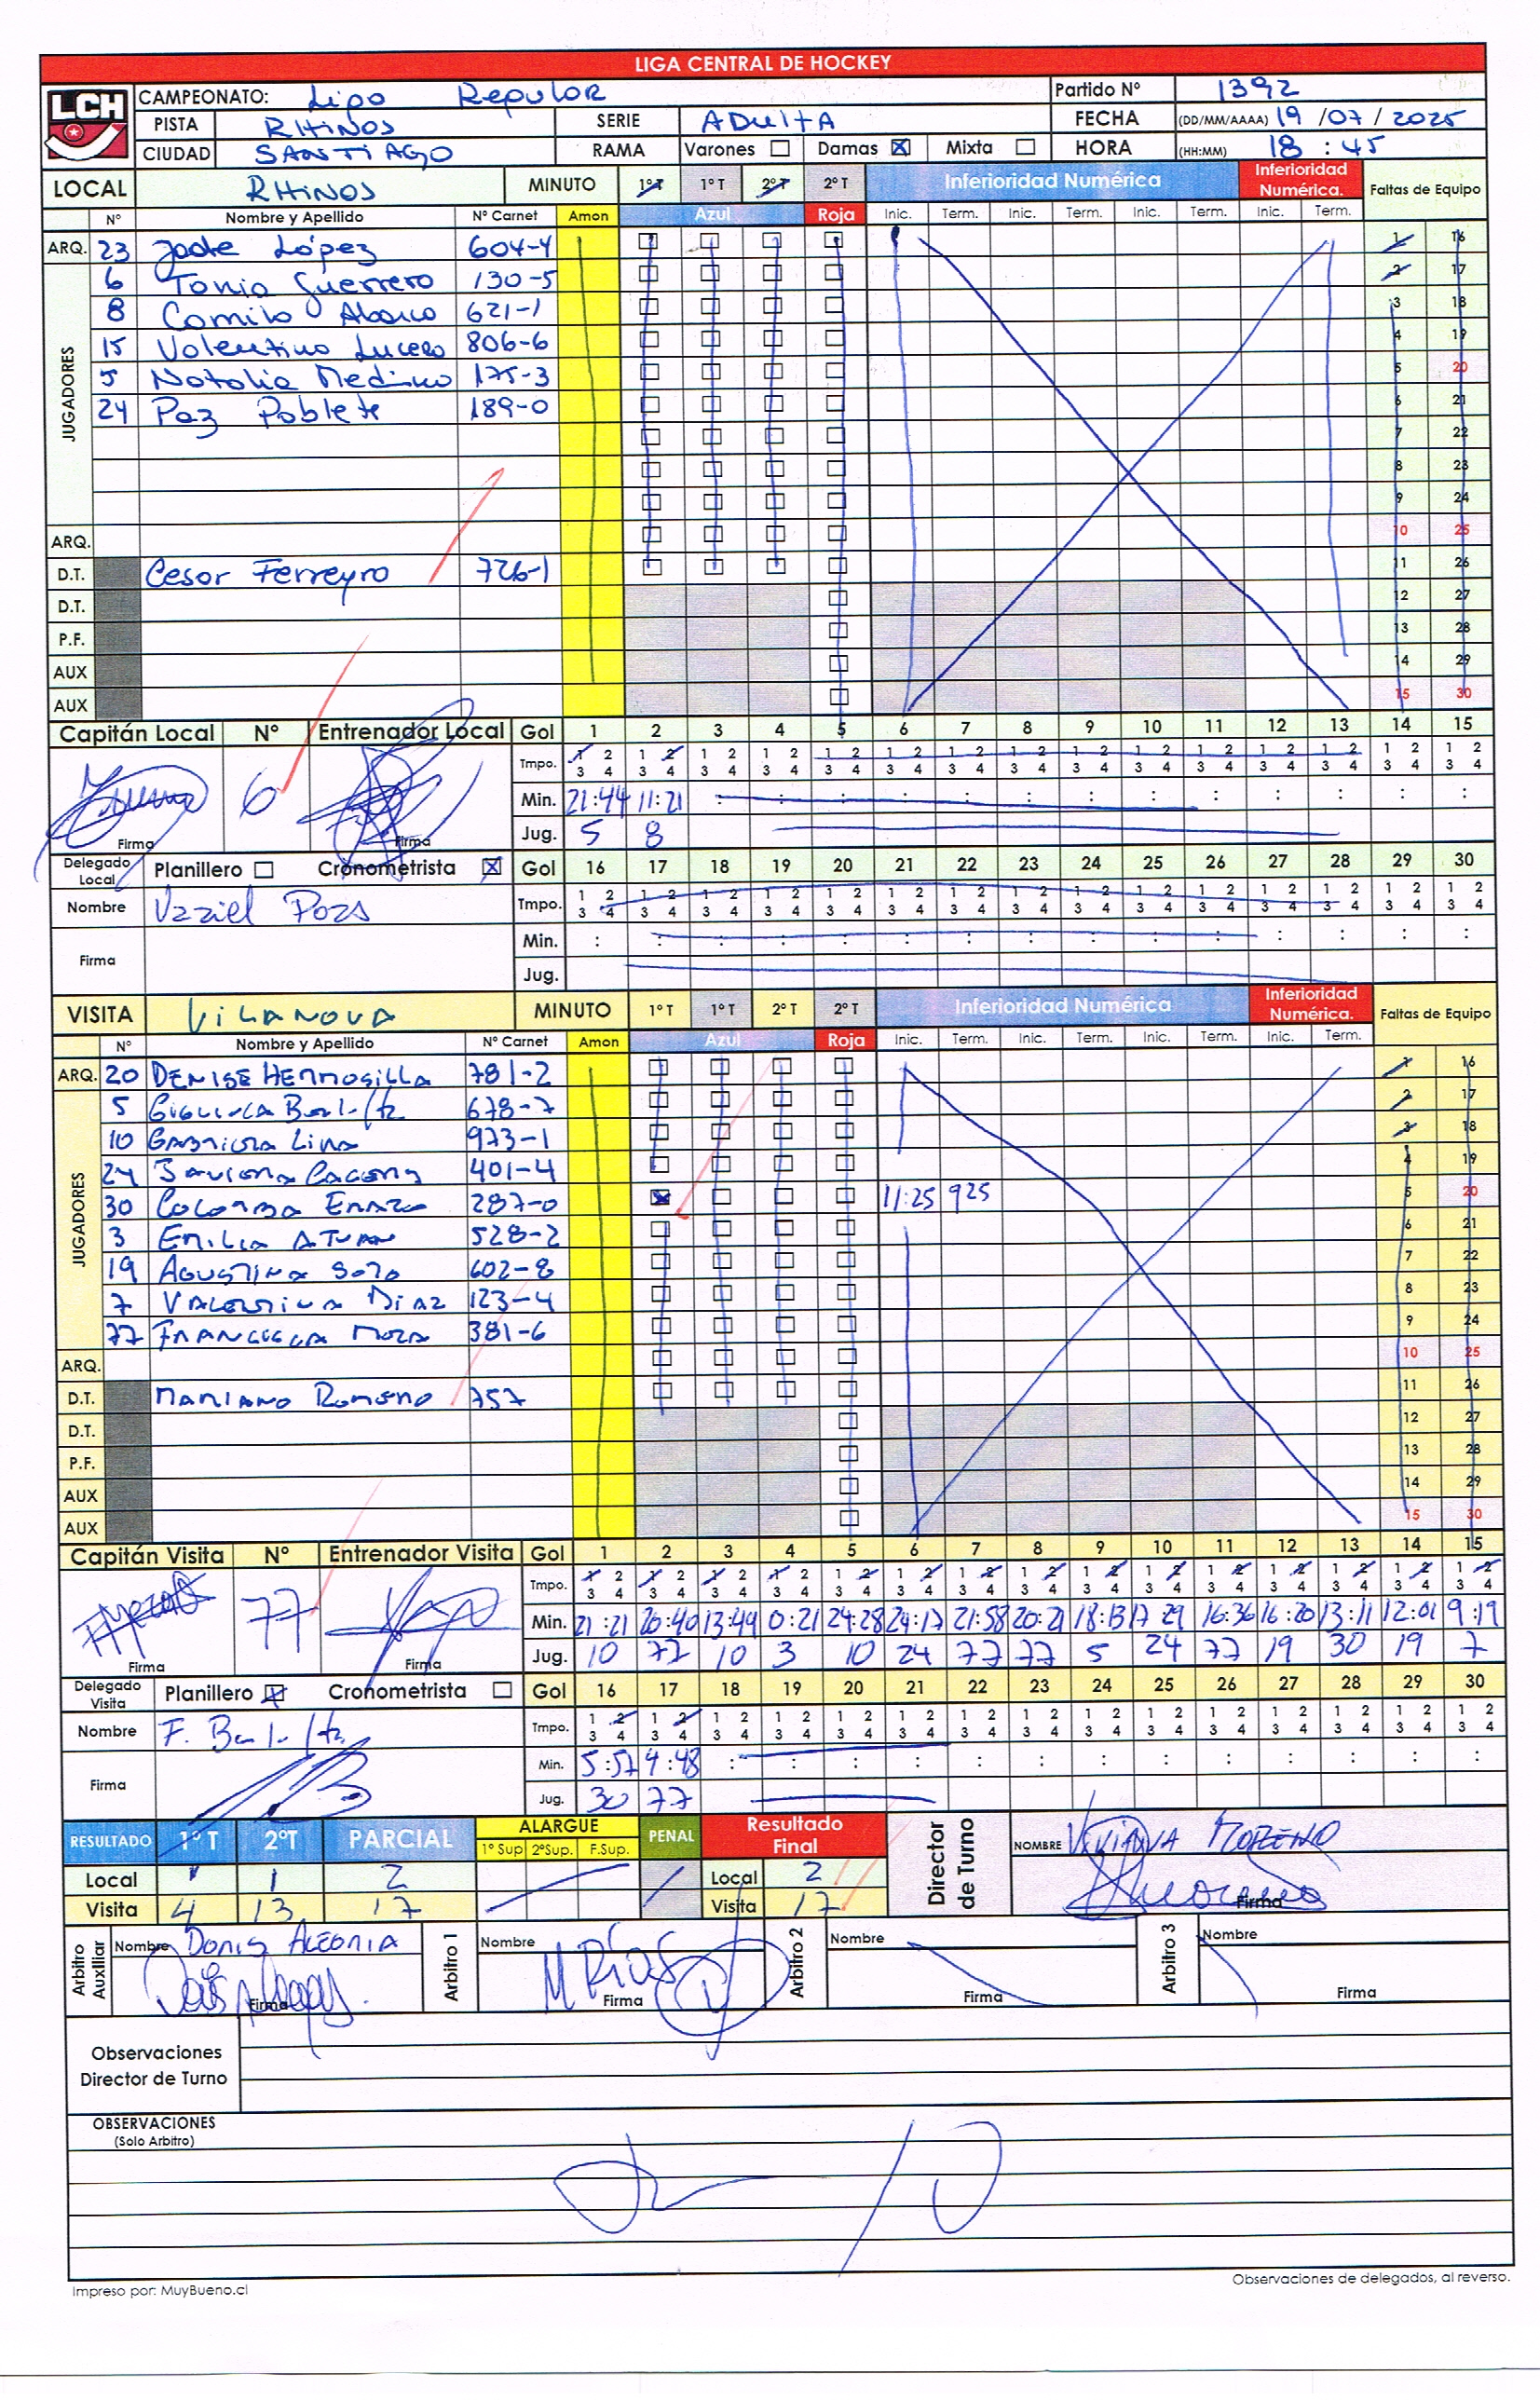 LIGA CENTRAL DE HOCKEY
LCH CAMPEONATO: Liga Regular Partido Nº 1392
PISTA RHINOS SERIE ADULTA FECHA (DD/MM/AAAA) 19 / 07 / 2025
CIUDAD SANTIAGO RAMA Varones Damas X Mixta HORA (HH:MM) 18 : 45
LOCAL RHINOS MINUTO 1º T 1º T 2º T 2º T Inferioridad Numérica Inferioridad Numérica. Faltas de Equipo
Nº Nombre y Apellido Nº Carnet Amon Azul Roja Inic. Term. Inic. Term. Inic. Term. Inic. Term.
ARQ. 23 Jade López 604-4 1 16
JUGADORES
6 Tonia Guerrero 130-5 2 17
8 Camila Abarca 621-1 3 18
15 Valentina Lucero 806-6 4 19
5 Natalia Medina 175-3 5 20
24 Paz Poblete 189-0 6 21
7 22
8 23
9 24
ARQ. 10 25
D.T. Cesar Ferreyra 726-1 11 26
D.T. 12 27
P.F. 13 28
AUX 14 29
AUX 15 30
Capitán Local Nº Entrenador Local Gol 1 2 3 4 5 6 7 8 9 10 11 12 13 14 15
Tmpo. 1 2 1 2 1 2 1 2 1 2 1 2 1 2 1 2 1 2 1 2 1 2 1 2 1 2 1 2 1 2
3 4 3 4 3 4 3 4 3 4 3 4 3 4 3 4 3 4 3 4 3 4 3 4 3 4 3 4 3 4
6 Min. 21:44 11:21 : : : : : : : : : : : : :
Firma Firma Jug. 5 8
Delegado Local Planillero Cronometrista X Gol 16 17 18 19 20 21 22 23 24 25 26 27 28 29 30
Nombre Uzziel Pozs Tmpo. 1 2 1 2 1 2 1 2 1 2 1 2 1 2 1 2 1 2 1 2 1 2 1 2 1 2 1 2 1 2
3 4 3 4 3 4 3 4 3 4 3 4 3 4 3 4 3 4 3 4 3 4 3 4 3 4 3 4 3 4
Firma Min. : : : : : : : : : : : : : : :
Jug.
VISITA VILANOVA MINUTO 1º T 1º T 2º T 2º T Inferioridad Numérica Inferioridad Numérica. Faltas de Equipo
Nº Nombre y Apellido Nº Carnet Amon Azul Roja Inic. Term. Inic. Term. Inic. Term. Inic. Term.
ARQ. 20 DENISE HERMOSILLA 781-2 1 16
JUGADORES
5 678-7 2 17
10 GABRIELA LIRA 973-1 3 18
24 401-4 4 19
30 COLOMBA ERAZO 287-0 X 11:25 925 5 20
3 EMILIA ATUAN 528-2 6 21
19 AGUSTINA SOTO 602-8 7 22
7 VALENTINA DIAZ 123-4 8 23
77 FRANCISCA MOZA 381-6 9 24
ARQ. 10 25
D.T. MARIANO ROMERO 757 11 26
D.T. 12 27
P.F. 13 28
AUX 14 29
AUX 15 30
Capitán Visita Nº Entrenador Visita Gol 1 2 3 4 5 6 7 8 9 10 11 12 13 14 15
Tmpo. 1 2 1 2 1 2 1 2 1 2 1 2 1 2 1 2 1 2 1 2 1 2 1 2 1 2 1 2 1 2
3 4 3 4 3 4 3 4 3 4 3 4 3 4 3 4 3 4 3 4 3 4 3 4 3 4 3 4 3 4
77 Min. 21:21 20:40 13:44 0:21 24:28 24:17 21:58 20:21 18:13 17 29 16:36 16:20 13:11 12:01 9:19
Firma Firma Jug. 10 77 10 3 10 24 77 77 5 24 77 19 30 19 7
Delegado Visita Planillero X Cronometrista Gol 16 17 18 19 20 21 22 23 24 25 26 27 28 29 30
Nombre F. Tmpo. 1 2 1 2 1 2 1 2 1 2 1 2 1 2 1 2 1 2 1 2 1 2 1 2 1 2 1 2 1 2
3 4 3 4 3 4 3 4 3 4 3 4 3 4 3 4 3 4 3 4 3 4 3 4 3 4 3 4 3 4
Firma Min. 5:57 4:48 : : : : : : : : : : : : :
Jug. 30 77
RESULTADO 1º T 2ºT PARCIAL ALARGUE 1º Sup 2ºSup. F.Sup. PENAL Resultado Final Director de Turno NOMBRE VIVIANA MORENO
Local 1 1 2 Local 2
Visita 4 13 17 Visita 17 Firma
Arbitro Auxiliar Nombre DORIS ALEGRIA Arbitro 1 Nombre Arbitro 2 Nombre Arbitro 3 Nombre
Firma M RÍOS Firma Firma Firma
Observaciones
Director de Turno
OBSERVACIONES
(Solo Arbitro)
Impreso por: MuyBueno.cl Observaciones de delegados, al reverso.